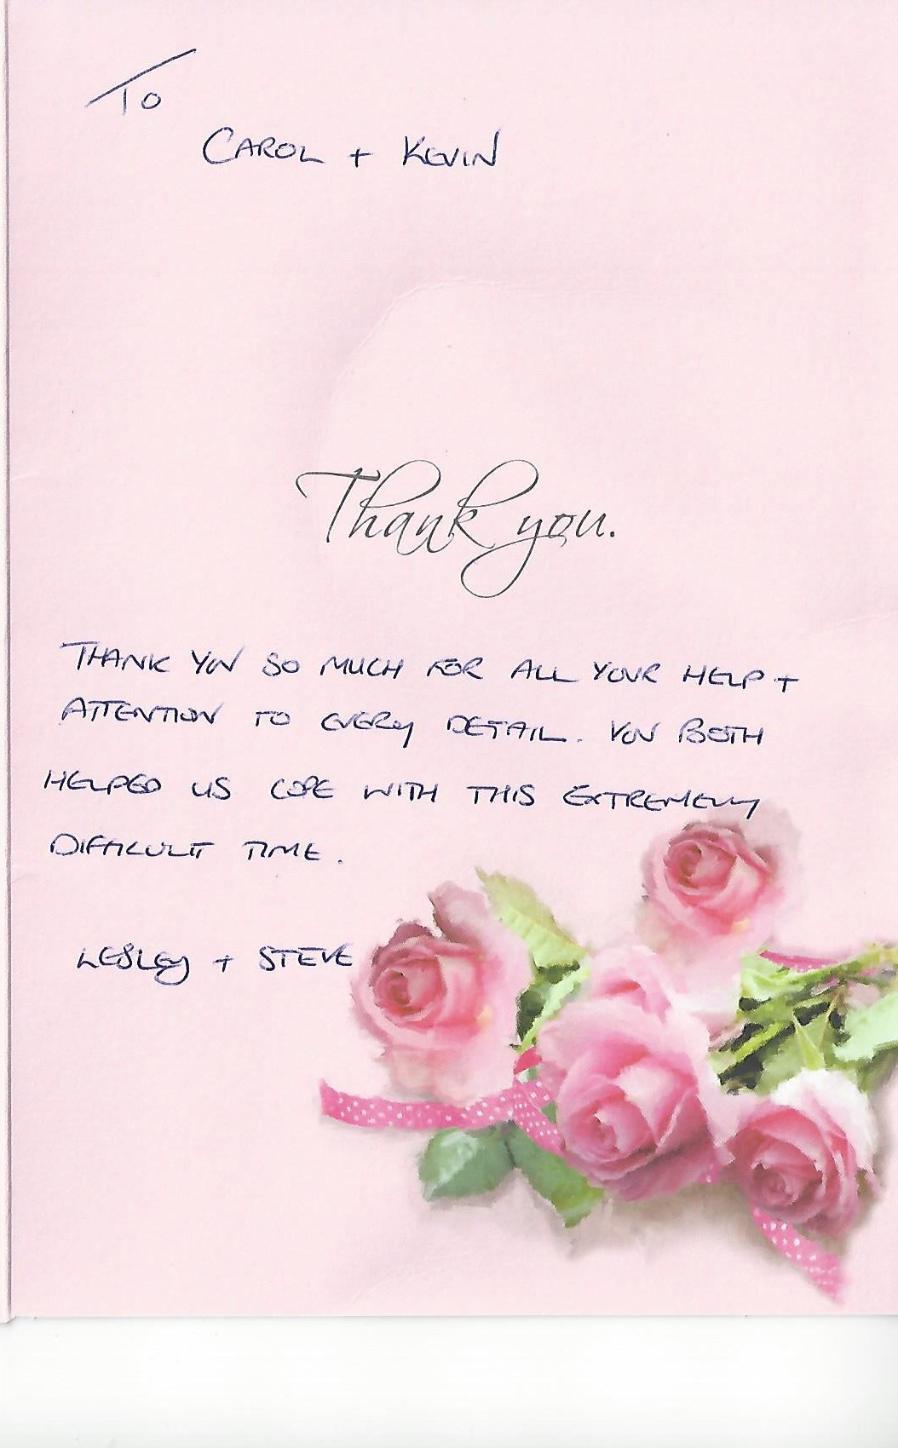 To
CAROL + KEVIN
Thank you.
THANK YOU SO MUCH FOR ALL YOUR HELP +
ATTENTION TO EVERY DETAIL. YOU BOTH
HELPED US COPE WITH THIS EXTREMELY
DIFFICULT TIME.
LESLEY + STEVE